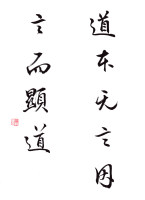 道本无言因
言而顯道